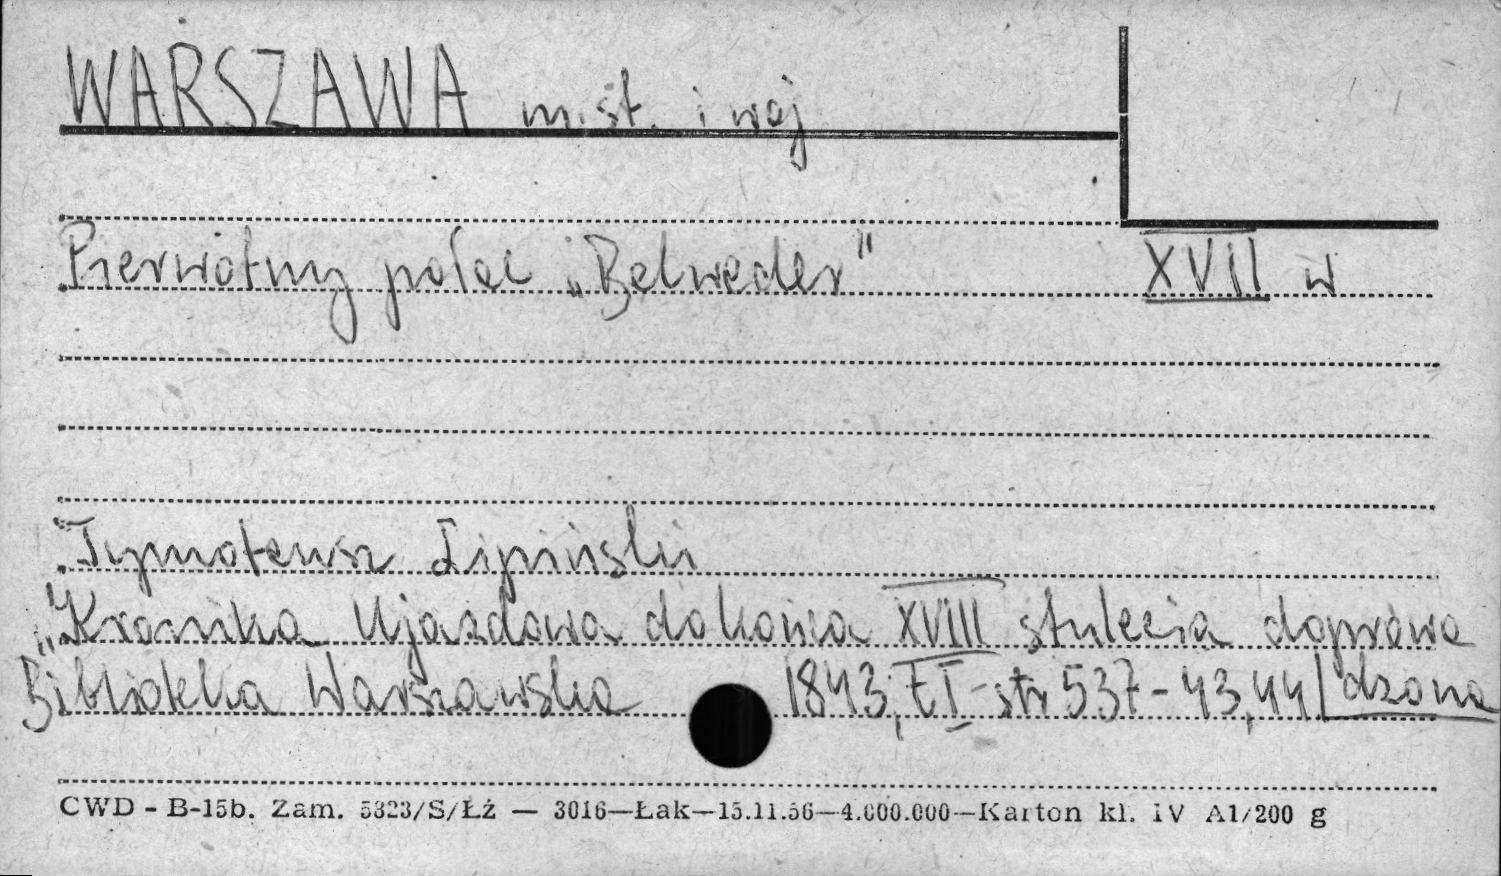 WARSZAWA m.st. i woj
Pierwotny pałac „Belweder" XVII w
Tymoteusz Lipiński
„Kronika Ujazdowa do końca XVIII stulecia doprowa
Biblioteka Warszawska 1843, t I - str 537-43,44 dzona
CWD - B-15b. Zam. 5323/S/ŁŻ — 3016—Łak—15.11.56—4.000.000—Karton kl. IV A1/200 g